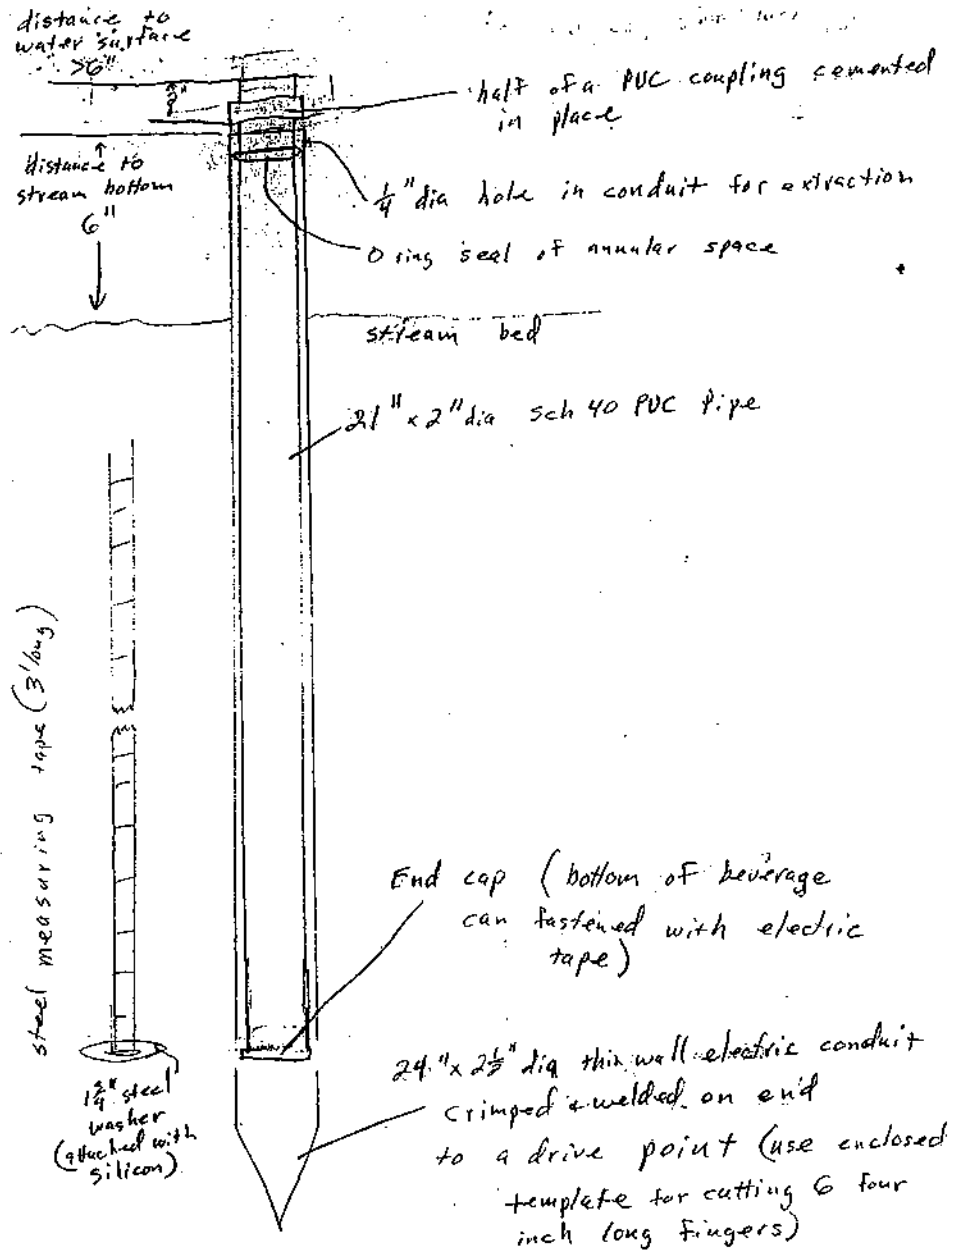 distance to
water surface
>6"
2"
half of a PUC coupling cemented
in place
distance to
stream bottom
6"
1/4" dia hole in conduit for extraction
O ring seal of annular space
stream bed
21" x 2" dia sch 40 PUC Pipe
steel measuring tape (3' long)
End cap (bottom of beverage
can fastened with electric
tape)
steel
washer
(attached with
silicon)
24" x 2 1/2" dia thin wall electric conduit
crimped & welded on end
to a drive point (use enclosed
template for cutting 6 four
inch long fingers)